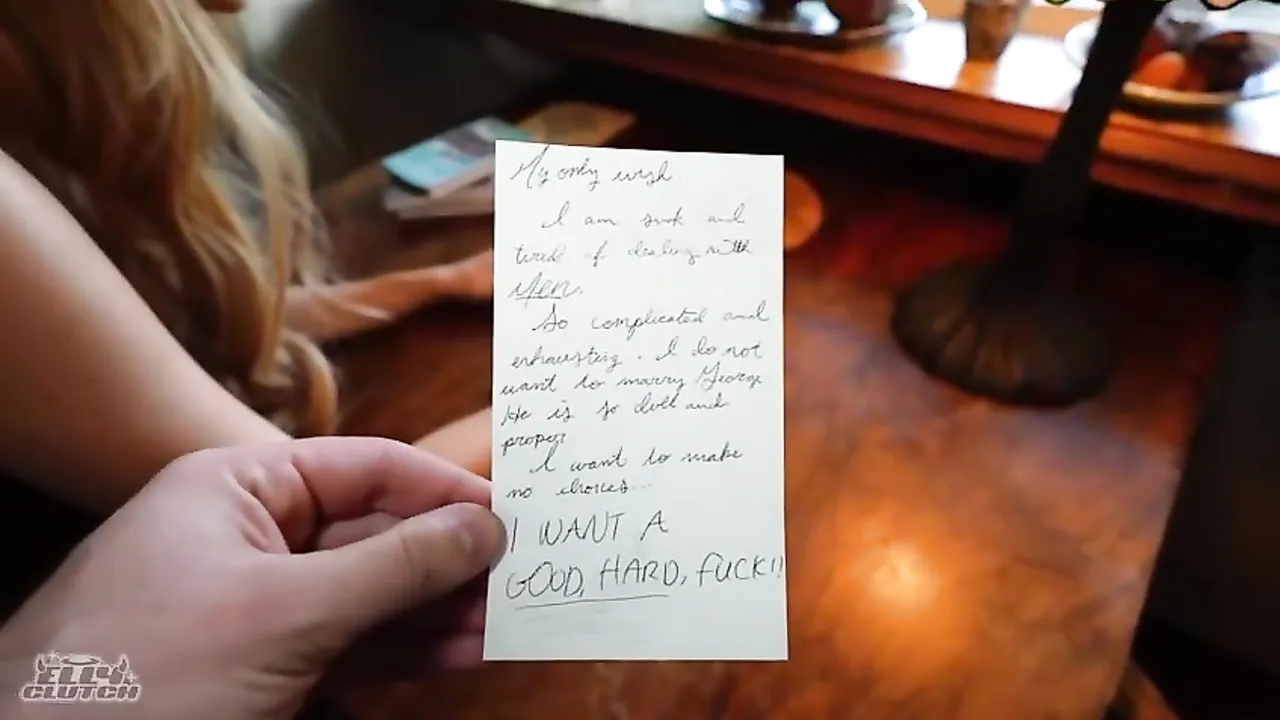 My only wish.
I am sick and
tired of dealing with
Men.
So complicated and
exhausting. I do not
want to marry George
He is so dull and
proper
I want to make
no choices...
I WANT A
GOOD, HARD, FUCK!!
ELLY
CLUTCH